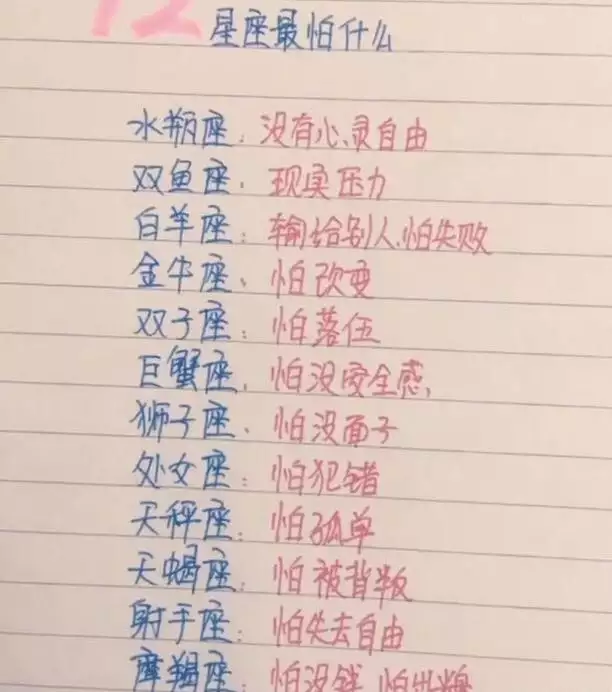 12
星座最怕什么
水瓶座：没有心灵自由
双鱼座：现实压力
白羊座：输给别人、怕失败
金牛座、怕改变
双子座：怕落伍
巨蟹座，怕没安全感、
狮子座、怕没面子
处女座：怕犯错
天秤座：怕孤单
天蝎座：怕被背叛
射手座：怕失去自由
摩羯座：怕没钱 怕出